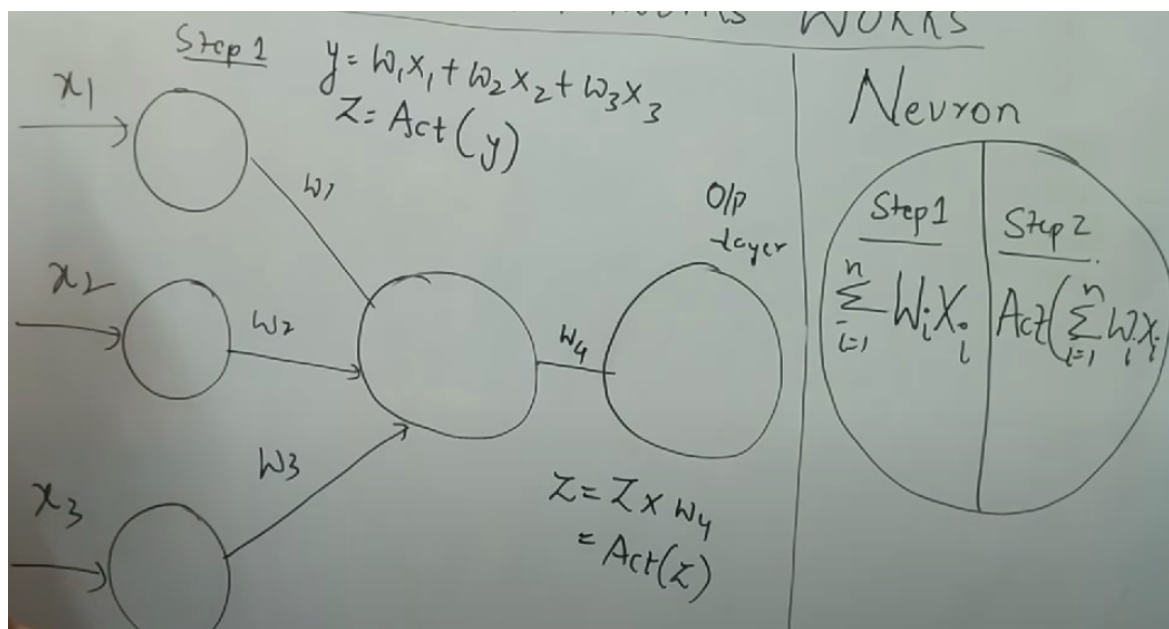 WORKS
Step 1
y = W₁x₁ + W₂x₂ + W₃x₃
Z = Act(y)
x1
W1
x2
W2
x3
W3
W4
O/P
layer
Z = Z x W4
= Act(Z)
Neuron
Step 1
n
∑ WᵢXᵢ
i=1
Step 2
n
Act(∑ WᵢXᵢ
i=1